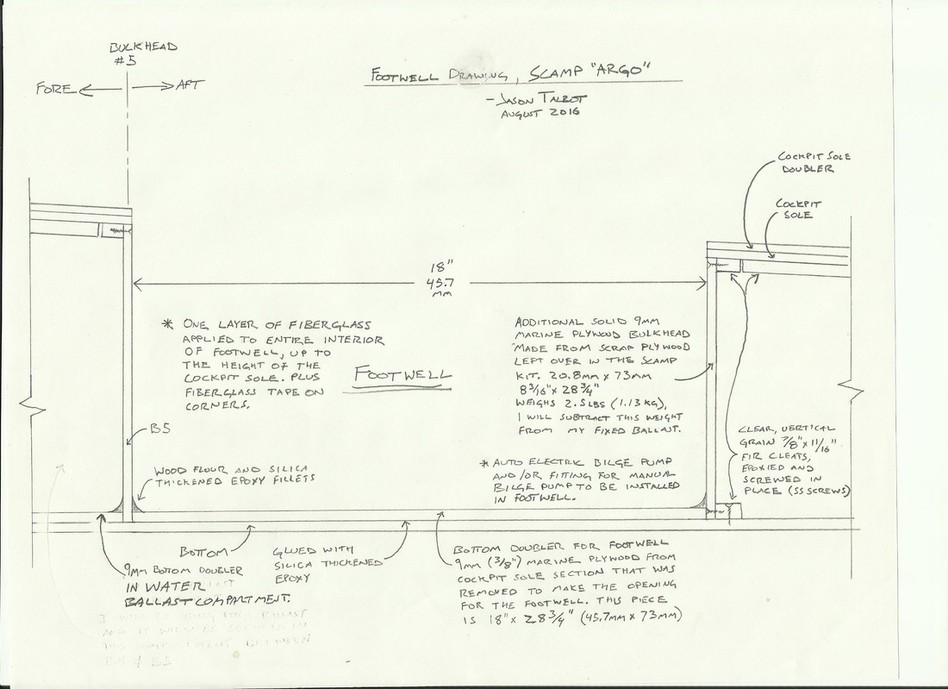 BULKHEAD
#5
FORE
AFT
FOOTWELL DRAWING, SCAMP "ARGO"
-JASON TALBOT
AUGUST 2016
COCKPIT SOLE
DOUBLER
COCKPIT
SOLE
18"
45.7
MM
* ONE LAYER OF FIBERGLASS
APPLIED TO ENTIRE INTERIOR
OF FOOTWELL, UP TO
THE HEIGHT OF THE
COCKPIT SOLE. PLUS
FIBERGLASS TAPE ON
CORNERS.
FOOTWELL
ADDITIONAL SOLID 9MM
MARINE PLYWOOD BULKHEAD
MADE FROM SCRAP PLYWOOD
LEFT OVER IN THE SCAMP
KIT. 20.8MM X 73MM
8 3/16" X 28 3/4"
WEIGHS 2.5 LBS (1.13 KG),
I WILL SUBTRACT THIS WEIGHT
FROM MY FIXED BALLAST.
B5
CLEAR, VERTICAL
GRAIN 7/8" X 11/16"
FIR CLEATS,
EPOXIED AND
SCREWED IN
PLACE (SS SCREWS)
WOOD FLOUR AND SILICA
THICKENED EPOXY FILLETS
* AUTO ELECTRIC BILGE PUMP
AND/OR FITTING FOR MANUAL
BILGE PUMP TO BE INSTALLED
IN FOOTWELL.
BOTTOM
9MM BOTTOM DOUBLER
IN WATER
BALLAST COMPARTMENT.
GLUED WITH
SILICA THICKENED
EPOXY
BOTTOM DOUBLER FOR FOOTWELL
9MM (3/8") MARINE PLYWOOD FROM
COCKPIT SOLE SECTION THAT WAS
REMOVED TO MAKE THE OPENING
FOR THE FOOTWELL. THIS PIECE
IS 18" X 28 3/4" (45.7MM X 73MM)